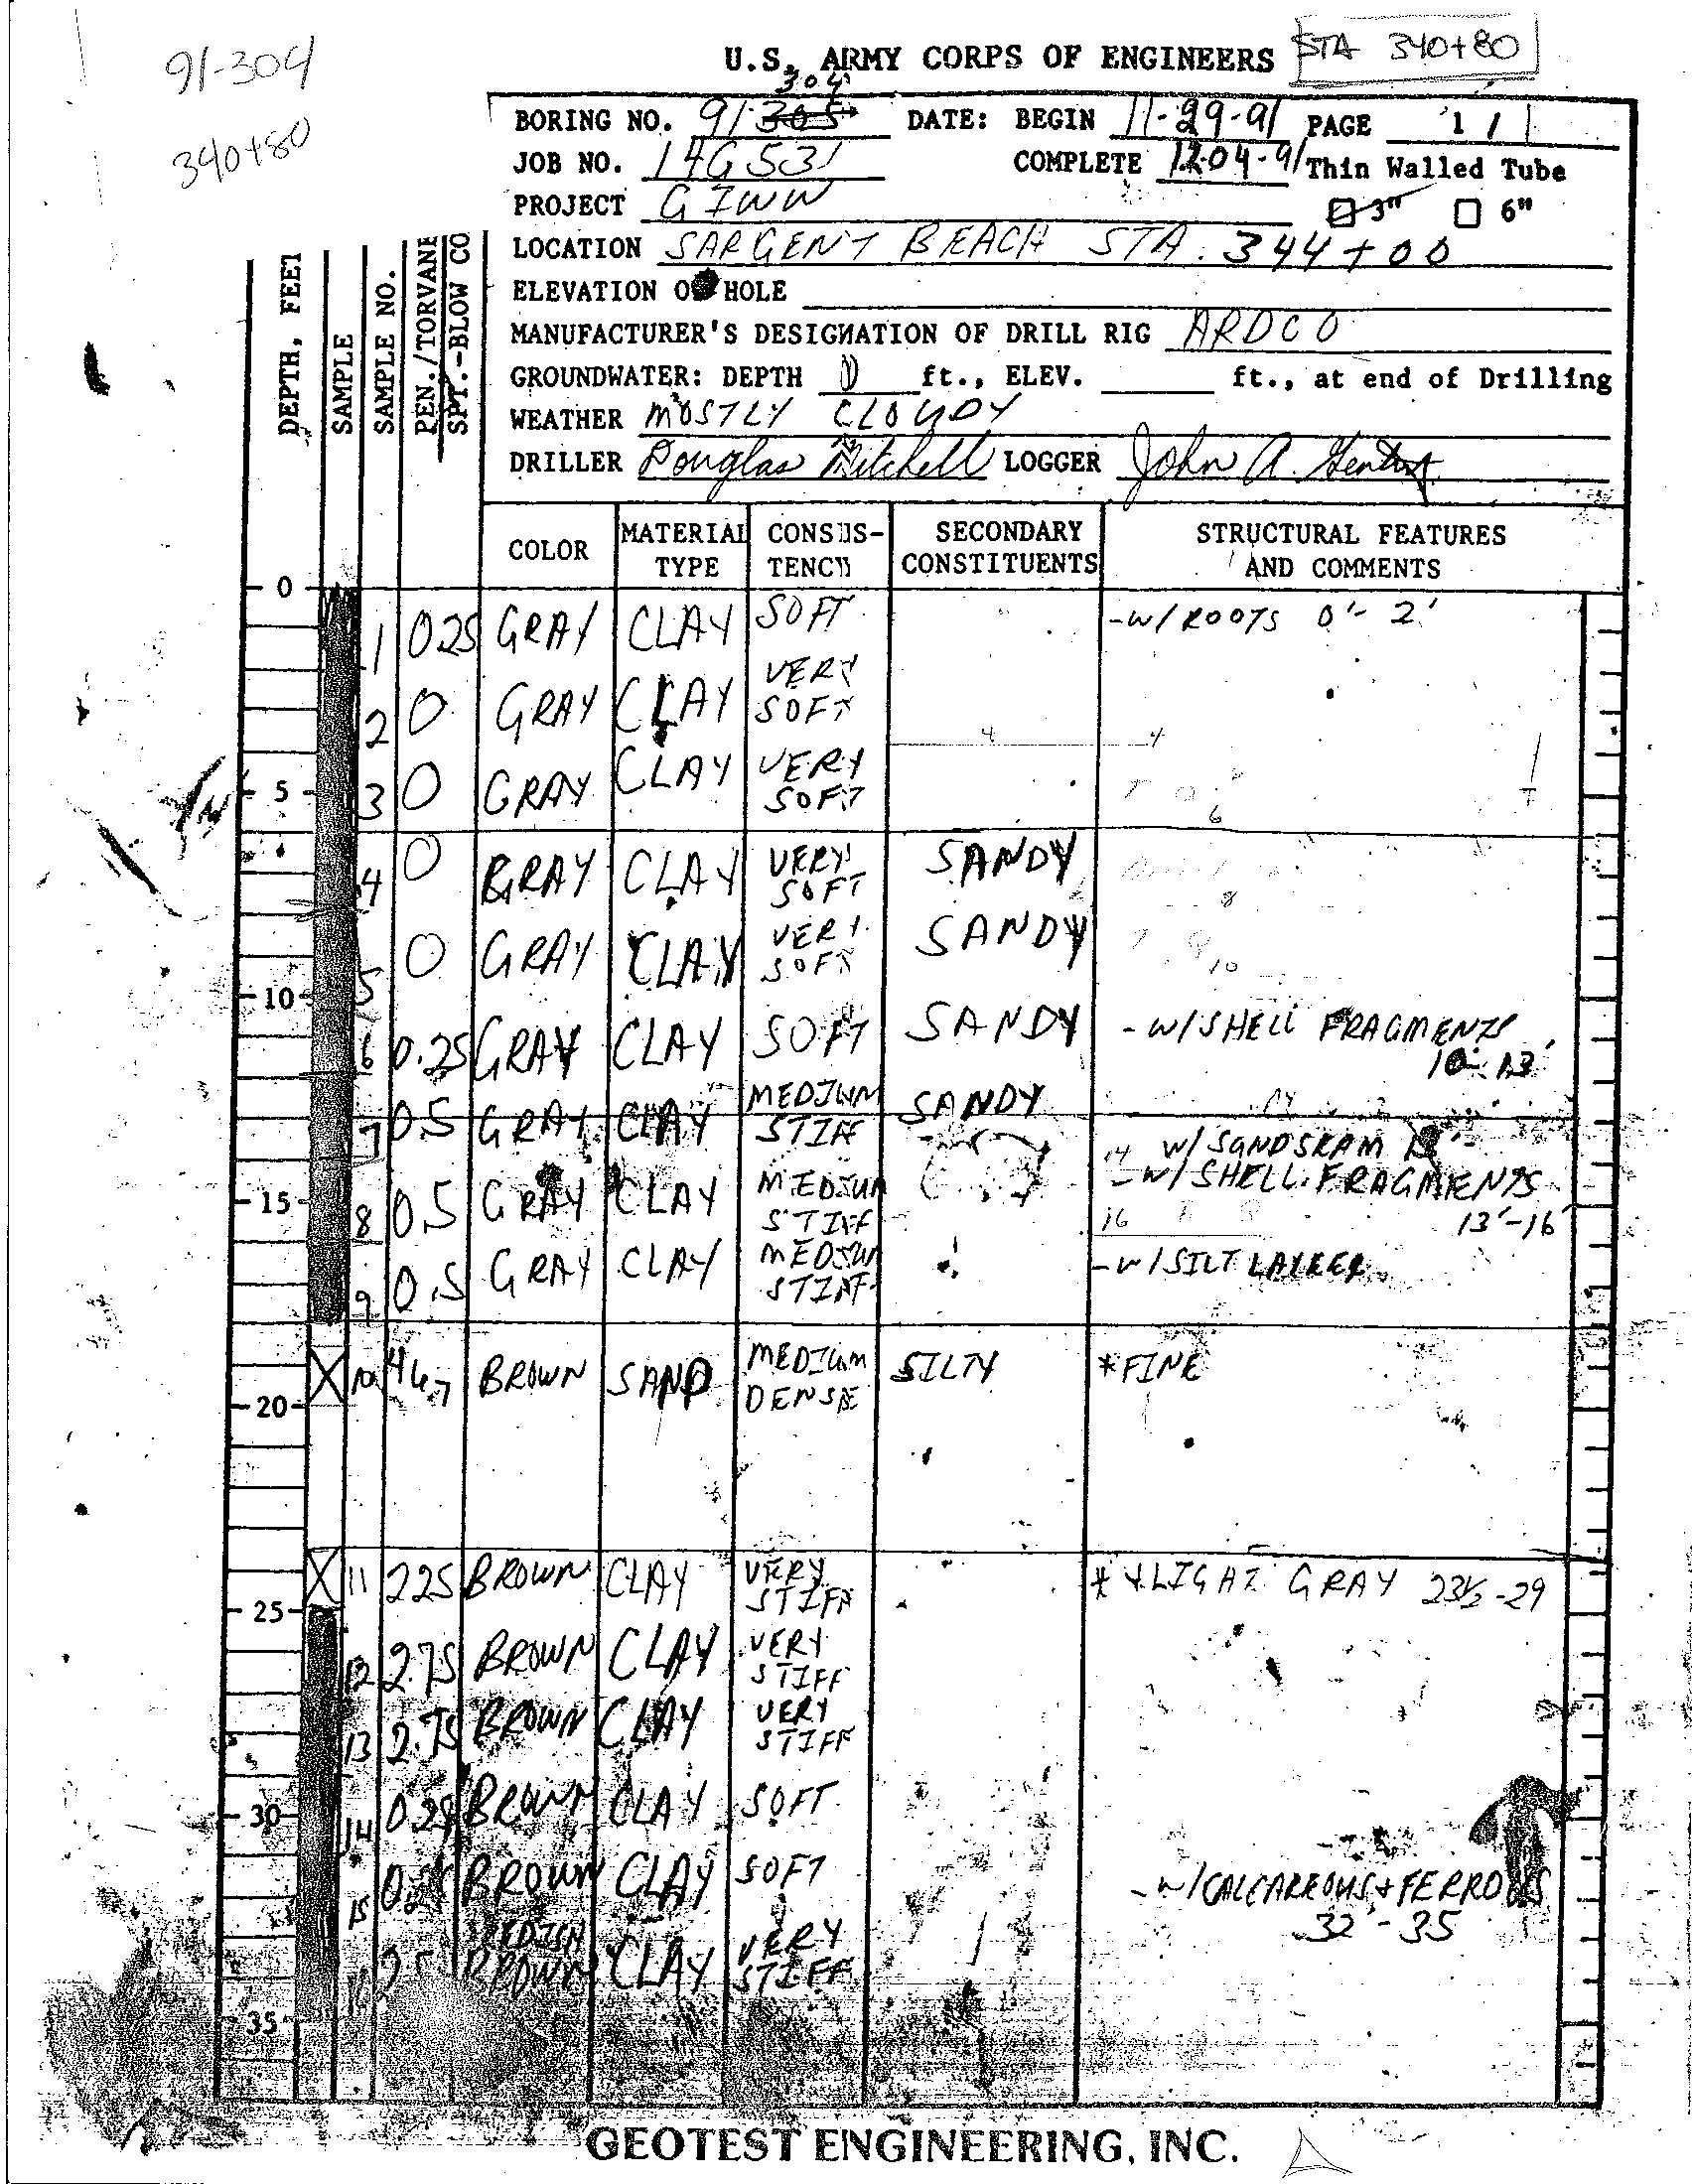 91-304
340+80
U.S. ARMY CORPS OF ENGINEERS
STA 340+80
304
BORING NO. 91-305 DATE: BEGIN 11-29-91 PAGE 1 /
JOB NO. 14G531 COMPLETE 12-04-91 Thin Walled Tube
PROJECT GIWW 3" 6"
LOCATION SARGENT BEACH STA. 344+00
ELEVATION OF HOLE
MANUFACTURER'S DESIGNATION OF DRILL RIG ARDCO
GROUNDWATER: DEPTH 0 ft., ELEV. ft., at end of Drilling
WEATHER MOSTLY CLOUDY
DRILLER Douglas Mitchell LOGGER John A.
DEPTH, FEET
SAMPLE
SAMPLE NO.
PEN./TORVANE
SPT.-BLOW CO
COLOR MATERIAL TYPE CONSISTENCY SECONDARY CONSTITUENTS STRUCTURAL FEATURES AND COMMENTS
0
1 0.25 GRAY CLAY SOFT -W/ROOTS 0'- 2'
2 0 GRAY CLAY VERY SOFT
4 4
5
3 0 GRAY CLAY VERY SOFT
6
4 0 GRAY CLAY VERY SOFT SANDY
8
5 0 GRAY CLAY VERY SOFT SANDY
10
10
6 0.25 GRAY CLAY SOFT SANDY -W/SHELL FRAGMENTS 10'-13'
7 0.5 GRAY CLAY MEDIUM STIFF SANDY
14 W/SANDSEAM
15
8 0.5 GRAY CLAY MEDIUM STIFF -W/SHELL FRAGMENTS 13'-16'
16
9 0.5 GRAY CLAY MEDIUM STIFF -W/SILT LAYER
10 4 6 7 BROWN SAND MEDIUM DENSE SILTY *FINE
20
11 2.25 BROWN CLAY VERY STIFF * LIGHT GRAY 23½-29
25
12 2.75 BROWN CLAY VERY STIFF
13 2.75 BROWN CLAY VERY STIFF
30
14 0.25 BROWN CLAY SOFT
15 BROWN CLAY SOFT -W/CALCAREOUS+FERROUS 32'-35
BROWN CLAY VERY STIFF
35
GEOTEST ENGINEERING, INC.